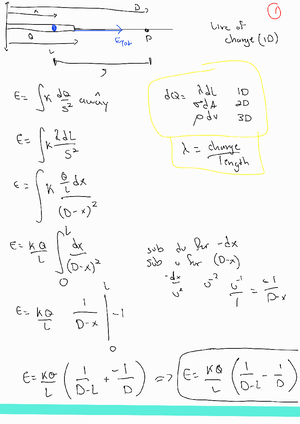 ①
D
x
E_Tot
P
Line of
charge (1D)
Q
L
E = ∫ K dQ/S² away
dQ = λdL 1D
σdA 2D
ρdv 3D
λ = charge/length
E = ∫ K λdL/S²
E = ∫ K (Q/L dx)/(D-x)²
E = KQ/L ∫₀ᴸ dx/(D-x)²
sub du for -dx
sub u for (D-x)
-dx/u² u⁻² u⁻¹/1 = -1/D-x
E = KQ/L 1/D-x | -1 L 0
E = KQ/L (1/D-L + -1/D) => E = KQ/L (1/D-L - 1/D)